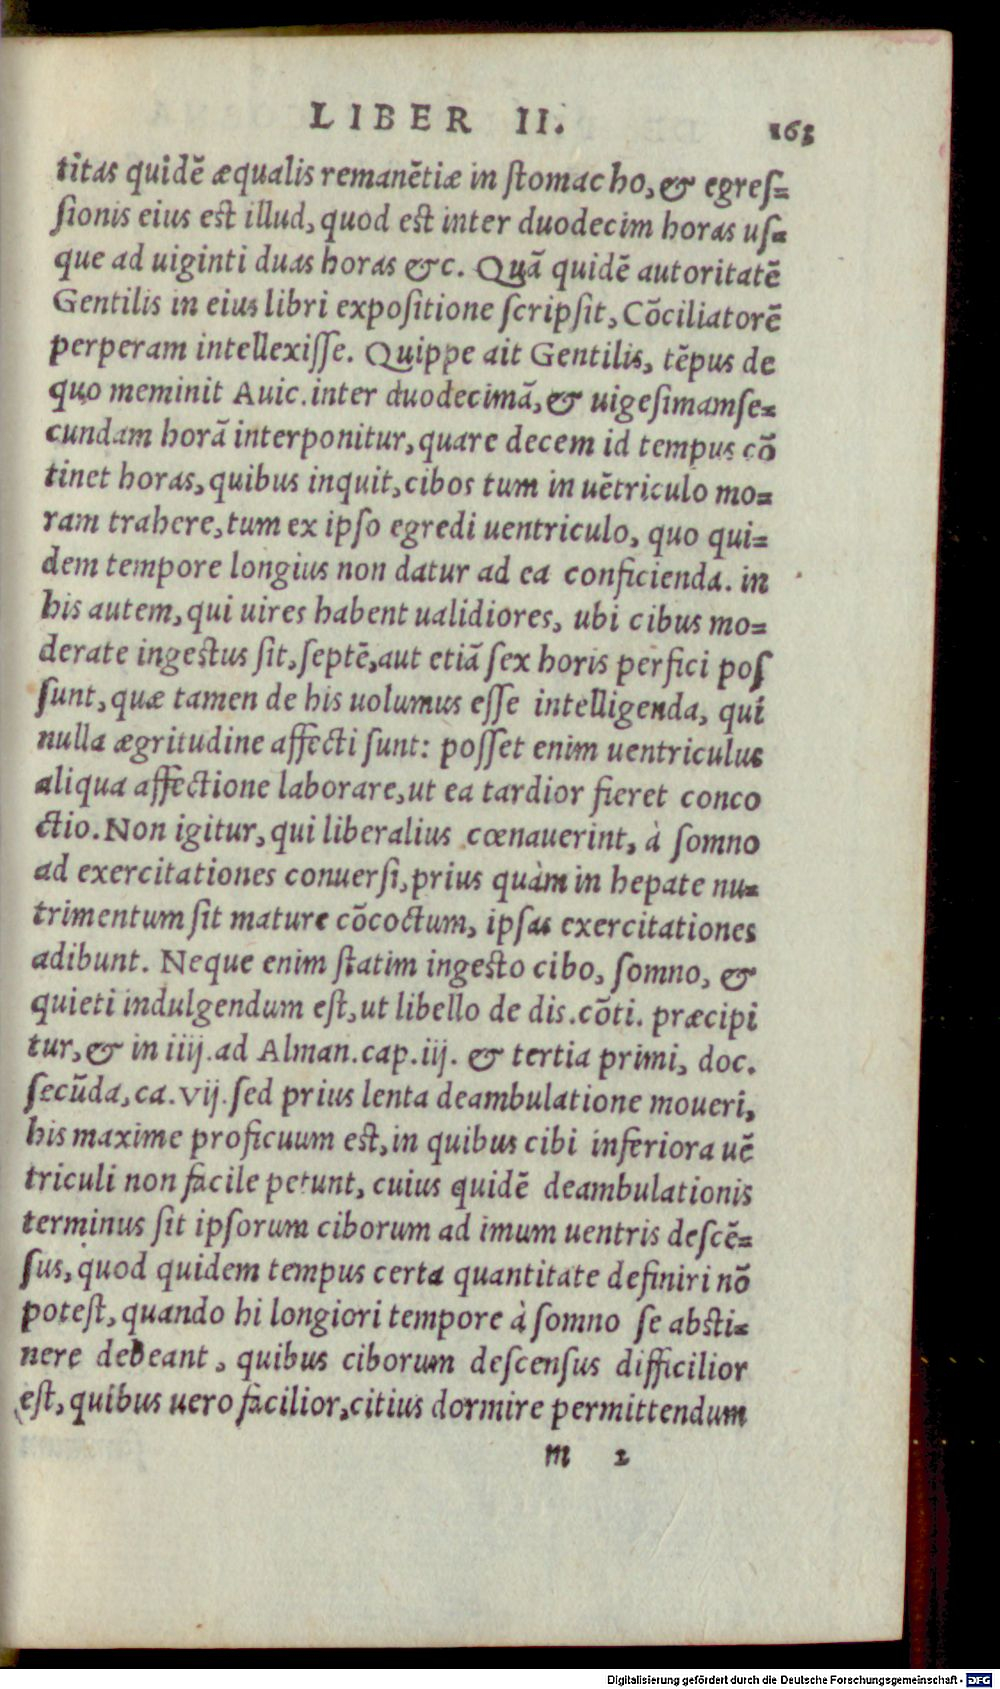 LIBER II. 163
titas quidē æqualis remanētiæ in ſtomacho, & egreſ-
ſionis eius est illud, quod est inter duodecim horas uſ-
que ad uiginti duas horas &c. Quā quidē autoritatē
Gentilis in eius libri expoſitione ſcripſit, Cōciliatorē
perperam intellexiſſe. Quippe ait Gentilis, tēpus de
quo meminit Auic. inter duodecimā, & uigeſimamſe-
cundam horā interponitur, quare decem id tempus cō
tinet horas, quibus inquit, cibos tum in uētriculo mo-
ram trahere, tum ex ipſo egredi uentriculo, quo qui-
dem tempore longius non datur ad ea conficienda. in
his autem, qui uires habent ualidiores, ubi cibus mo-
derate ingestus ſit, ſeptē, aut etiā ſex horis perfici poſ
ſunt, quæ tamen de his uolumus eſſe intelligenda, qui
nulla ægritudine affecti ſunt: poſſet enim uentriculus
aliqua affectione laborare, ut ea tardior fieret conco
ctio. Non igitur, qui liberalius cœnauerint, à ſomno
ad exercitationes conuerſi, prius quàm in hepate nu-
trimentum ſit mature cōcoctum, ipſas exercitationes
adibunt. Neque enim ſtatim ingesto cibo, ſomno, &
quieti indulgendum eſt, ut libello de dis. cōti. præcipi
tur, & in iiij. ad Alman. cap. iij. & tertia primi, doc.
ſecūda, ca. vij. ſed prius lenta deambulatione moueri,
his maxime proficuum est, in quibus cibi inferiora uē
triculi non facile petunt, cuius quidē deambulationis
terminus ſit ipſorum ciborum ad imum uentris deſcē-
ſus, quod quidem tempus certa quantitate definiri nō
poteſt, quando hi longiori tempore à ſomno ſe absti-
nere debeant, quibus ciborum deſcenſus difficilior
eſt, quibus uero facilior, citius dormire permittendum
m 2
Digitalisierung gefördert durch die Deutsche Forschungsgemeinschaft - DFG